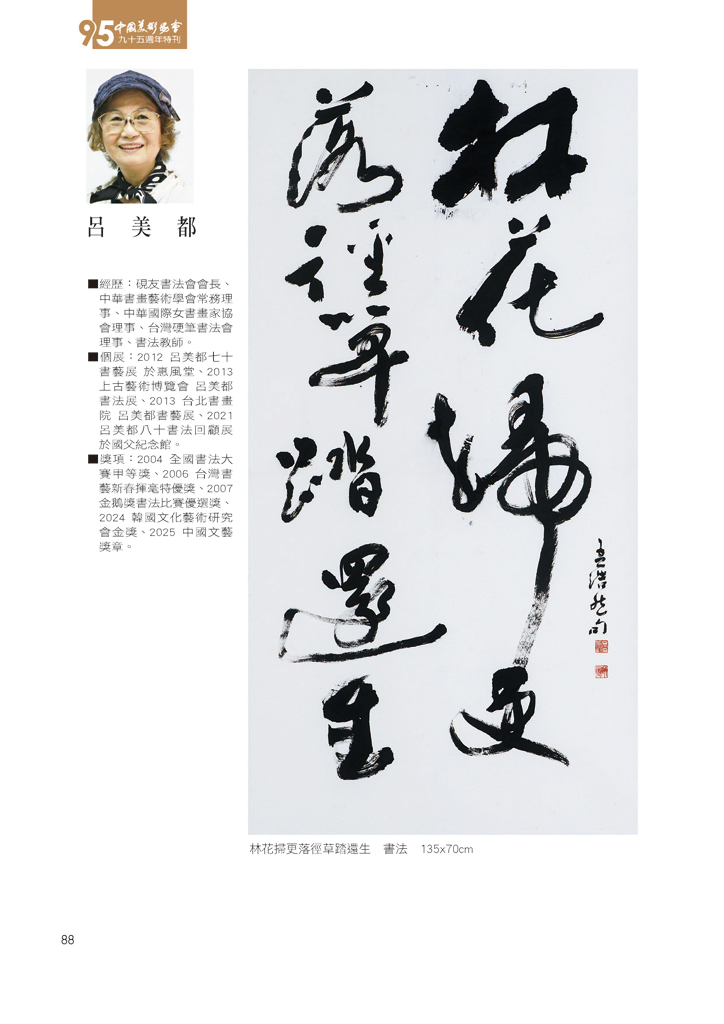 95 中國美術協會
九十五週年特刊
呂美都
■經歷：硯友書法會會長、
中華書畫藝術學會常務理
事、中華國際女書畫家協
會理事、台灣硬筆書法會
理事、書法教師。
■個展：2012 呂美都七十
書藝展 於惠風堂、2013
上古藝術博覽會 呂美都
書法展、2013 台北書畫
院 呂美都書藝展、2021
呂美都八十書法回顧展
於國父紀念館。
■獎項：2004 全國書法大
賽甲等獎、2006 台灣書
藝新春揮毫特優獎、2007
金鵝獎書法比賽優選獎、
2024 韓國文化藝術研究
會金獎、2025 中國文藝
獎章。
林花掃更
落徑草踏還生
孟浩然句
林花掃更落徑草踏還生 書法 135x70cm
88